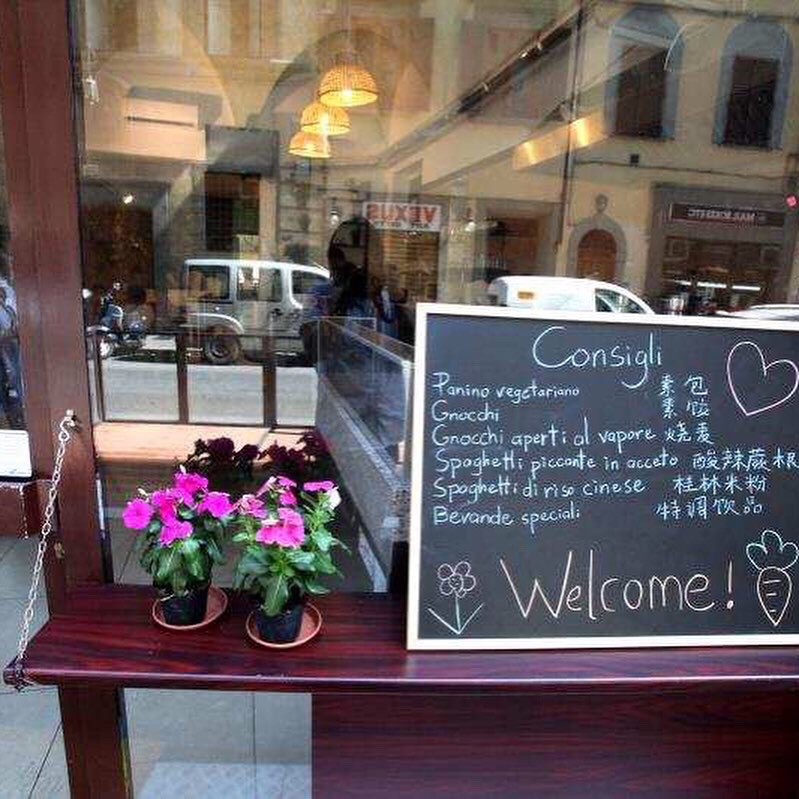 VEXUS
Consigli
Panino vegetariano 素包
Gnocchi 素饺
Gnocchi aperti al vapore 烧麦
Spaghetti piccante in acceto 酸辣蕨根
Spaghetti di riso cinese 桂林米粉
Bevande speciali 特调饮品
Welcome!